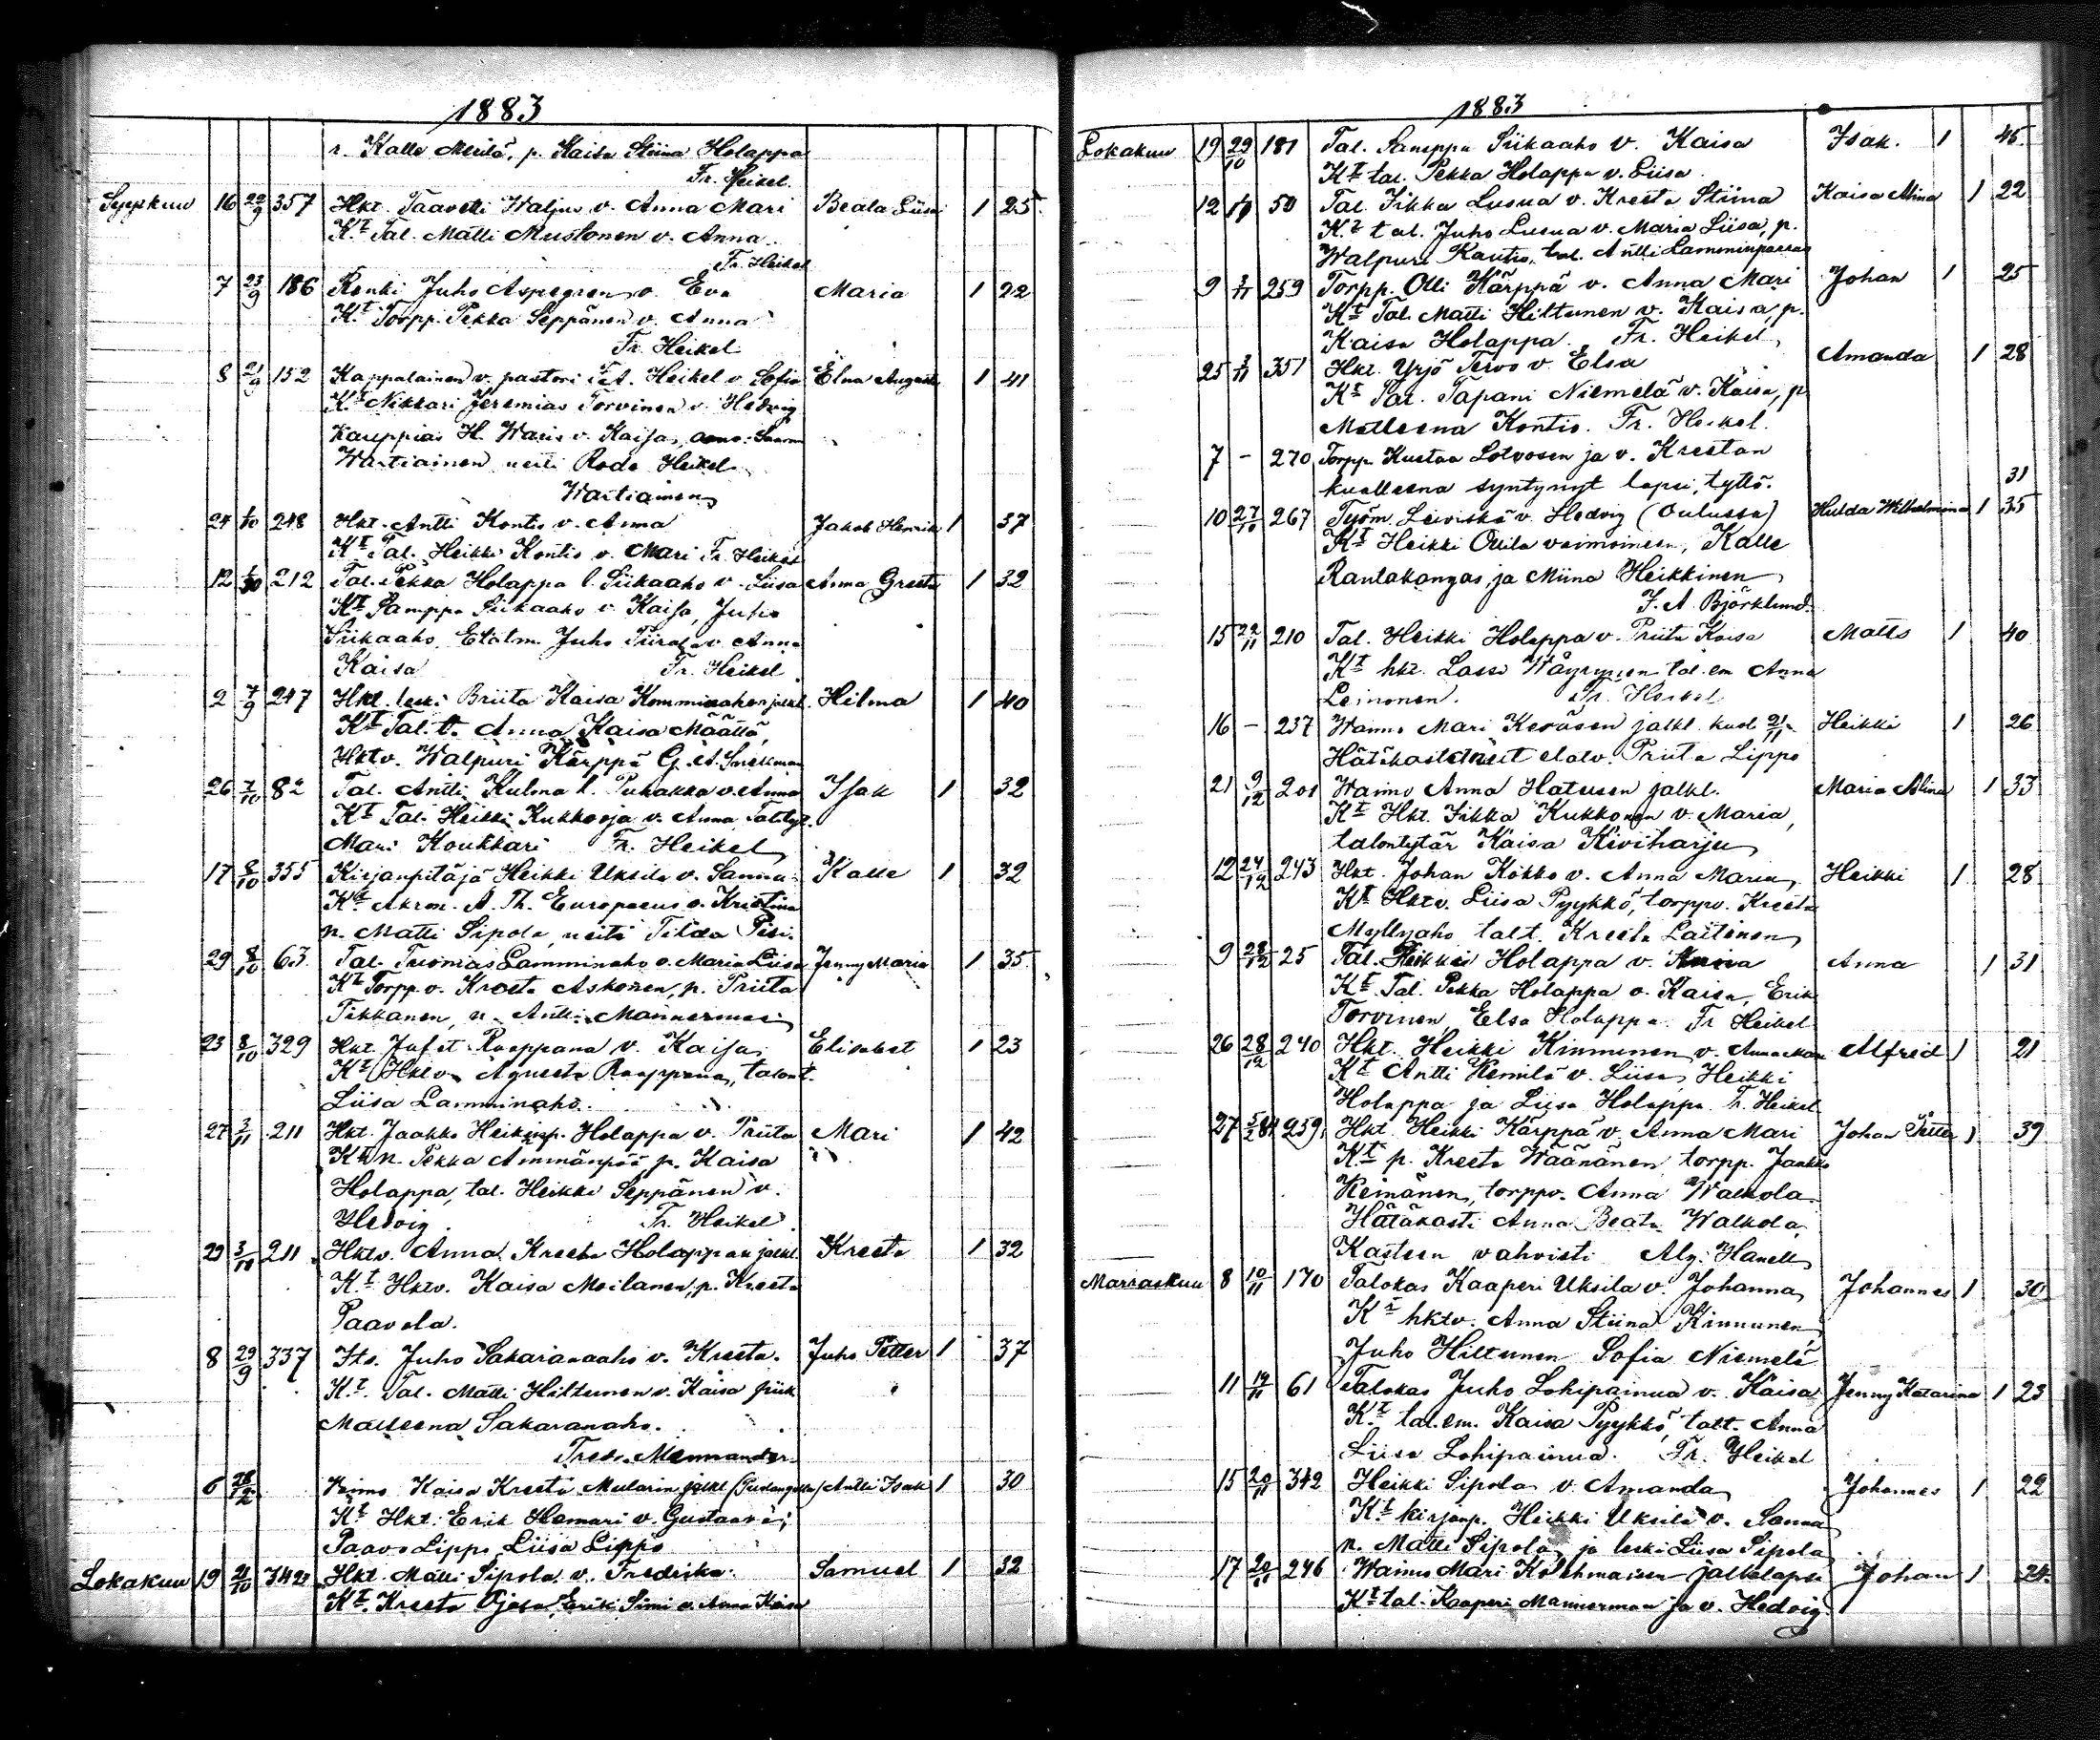 1883
r. Kalle Merilä, p. Kaisa Stiina Holappa
Fr. Heikel.
Syyskuu 16 22/9 357 Hkt. Taavetti Waljus v. Anna Mari Beata Liisa 1 25
Kt Tal. Matti Mustonen v. Anna
Fr. Heikel
7 23/9 186 Renki Juho Aspegren v. Eva Maria 1 22
Kt Torpp. Pekka Seppänen v. Anna
Fr. Heikel
8 21/9 152 Kappalainen v. pastori F. A. Heikel v. Sofia Elna Augusta 1 41
Kt Nikkari Jeremias Torvinen v. Hedvig
Kauppias H. Waris v. Kaisa,
Wartiainen neiti Heikel
Wartiainen
24 1/10 248 Hkt. Antti Kontio v. Anna Jakob Henrik 1 37
Kt Tal. Heikki Kontio v. Mari Fr. Heikel
12 212 Tal. Pekka Holappa l. Siikaaho v. Liisa Anna Greeta 1 32
Kt Samppa Siikaaho v. Kaisa, Juho
Siikaaho, Juho v. Anna
Kaisa Fr. Heikel
2 7/9 247 Hkl. leski Briita Kaisa jalkl. Hilma 1 40
Kt Tal. t. Anna Kaisa Määttä,
Hktv. Walpuri Kärppä G. A. Snellman
26 7/10 82 Tal. Antti Kulma l. Puhakka v. Anna Isak 1 32
Kt Tal. Heikki Kukkooja v. Anna,
Mari Koukkari Fr. Heikel
17 8/10 355 Kirjanpitäjä Heikki Uksila v. Sanna Kalle 1 32
Kt A. Th. Europaeus v. Kristina
n. Matti Sipola, neiti Tilda
29 8/10 63 Tal. Tuomas Lamminaho v. Maria Liisa Jenny Maria 1 35
Kt Torpp. v. Kreeta Askonen, p. Priita
Tikkanen, n. Antti Mannermaa
23 8/10 329 Hkt. Jafet Raappana v. Kaisa Elisabet 1 23
Kt Hktv. Agneeta Raappana, talont.
Liisa Lamminaho.
27 3/11 211 Hkt. Jaakko Heikinp. Holappa v. Priita Mari 1 42
Kt n. Pekka Ämmänpää p. Kaisa
Holappa, tal. Heikki Seppänen v.
Hedvig. Fr. Heikel
29 3/11 211 Hktv. Anna Kreeta Holappan jalkl. Kreeta 1 32
Kt Hktv. Kaisa Moilanen, p. Kreeta
Paavola.
8 29/9 337 Its. Juho Sakaranaaho v. Kreeta. Juho Petter 1 37
Kt. Tal. Matti Hiltunen v. Kaisa piik
Malleena Sakaranaho.
Fredr. Mennander
6 Waimo Kaisa Kreeta jalkl Antti Isak 1 30
Kt Hkt. Erik Hamari v. Gustaava,
Paavo Lippo Liisa Lippo
Lokakuu 19 21/10 342 Hkt. Matti Sipola v. Fredrika. Samuel 1 32
Kt. Kreeta Ojala Erik v. Anna Kaisa
1883
Lokakuu 19 29/10 181 Tal. Samppa Siikaaho v. Kaisa Isak. 1 45
Kt tal. Pekka Holappa v. Liisa
12 50 Tal. Iikka Lusua v. Kreeta Stiina Kaisa Miina 1 22
Kt tal. Juho Lusua v. Maria Liisa, p.
Walpuri Kautio, tal. Antti
9 3/11 259 Torpp. Olli Kärppä v. Anna Mari Johan 1 25
Kt Tal. Matti Hiltunen v. Kaisa, p.
Kaisa Holappa. Fr. Heikel
25 3/11 351 Hkt. Yrjö Tervo v. Elsa Amanda 1 28
Kt Tal. Tapani Niemelä v. Kaisa, p
Malleena Kontio. Fr. Heikel.
7 - 270 Torpp. Kustaa Lotvosen ja v. Kreetan
kuolleena syntynyt lapsi, tyttö. 31
10 27/10 267 Työm. Leiviskä v. Hedvig (Oulussa) Hulda Wilhelmina 1 35
Kt Heikki Ollila vaimoineen, Kalle
Rantakangas ja Miina Heikkinen
J. A. Björklund.
15 22/11 210 Tal. Heikki Holappa v. Priita Kaisa Matts 1 40
Kt hkt. Lasse Wäyrynen tal. em Anna
Leinonen. Fr. Heikel
16 - 237 Waimo Mari Keräsen jalkl. kuol. 21/11 Heikki 1 26
Hätäkastetneet Priita Lippo
21 9/12 201 Waimo Anna Hatusen jalkl. Maria Alina 1 33
Kt Hkt. Iikka Kukkonen v. Maria,
talontytär Kaisa Kiviharju
12 27/12 243 Hkt. Johan Kokko v. Anna Maria Heikki 1 28
Kt Hktv. Liisa Pyykkö, torppv. Kreeta
Myllyaho talt. Kreeta Laitinen
9 28/12 25 Tal. Heikki Holappa v. Anna Anna 1 31
Kt Tal. Pekka Holappa v. Kaisa, Erik
Torvinen, Elsa Holappa. Fr Heikel
26 28/12 240 Hkt. Heikki Kinnunen v. Alfred 1 21
Kt Antti Kemilä v. Liisa Heikki
Holappa ja Liisa Holappa Fr. Heikel
27 5/2 84 259 Hkt Heikki Kärppä v. Anna Mari Johan Petter 1 39
Kt p. Kreeta Wäänänen torpp. Jaakko
Keinänen, torppv. Anna Walkola
Hätäkasti Anna Beata Walkola,
Kasteen vahvisti Alg. Hanell
Marraskuu 8 10/11 170 Talokas Kaaperi Uksila v. Johanna Johannes 1 30
Kt hktv. Anna Stiina Kinnunen
Juho Hiltunen Sofia Niemelä
11 61 Talokas Juho Lohipainua v. Kaisa Jenny Katarina 1 23
Kt tal. em. Kaisa Pyykkö, talt. Anna
Liisa Lohipainua. Fr. Heikel
15 20/11 342 Heikki Sipola v. Amanda Johannes 1 22
Kt kirjanp. Heikki Uksila v. Sanna
n. Matti Sipola, ja leski Liisa Sipola
17 20/11 246 Waimo Mari Kolehmaisen jalkalapsi Johan 1 24
Kt tal. Kaaperi Mannerman ja v. Hedvig.